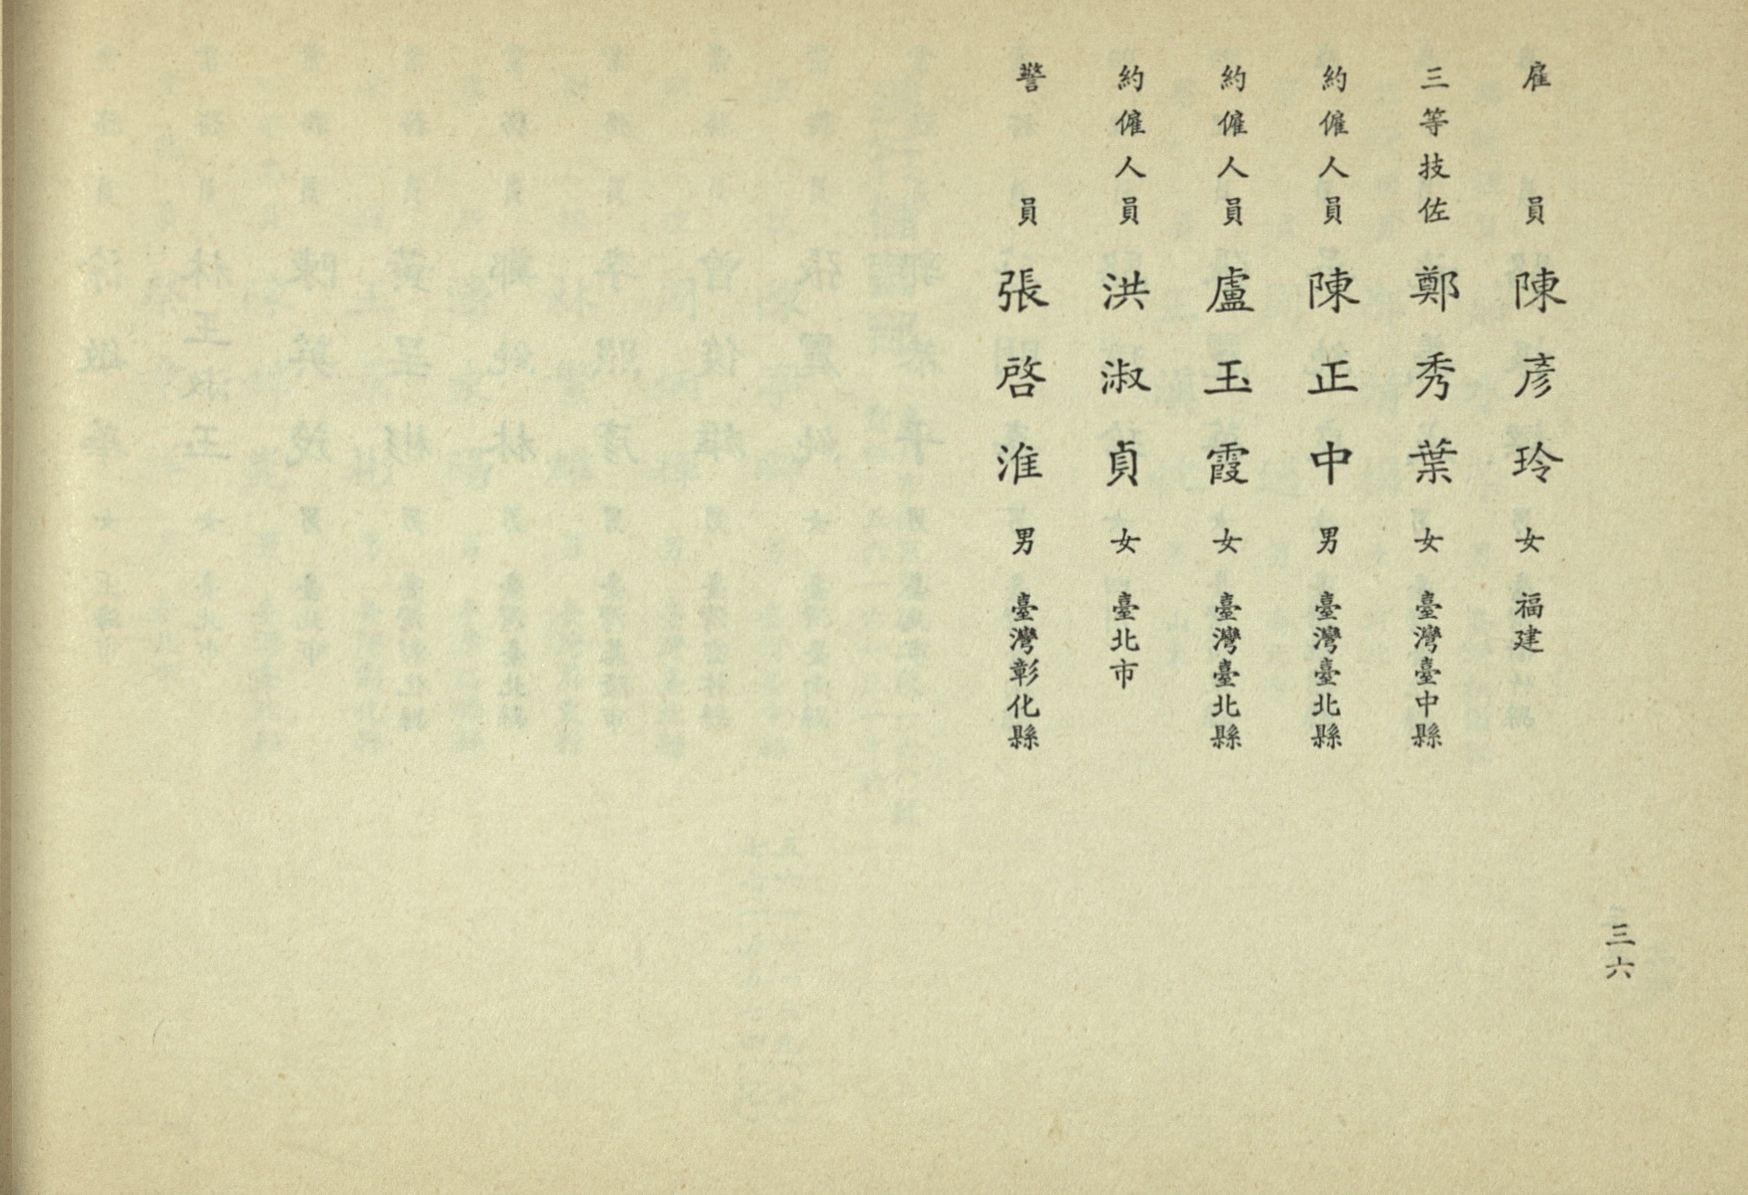 三六
雇員 陳彥玲 女 福建
三等技佐 鄭秀葉 女 臺灣臺中縣
約僱人員 陳正中 男 臺灣臺北縣
約僱人員 盧玉霞 女 臺灣臺北縣
約僱人員 洪淑貞 女 臺北市
警員 張啓淮 男 臺灣彰化縣